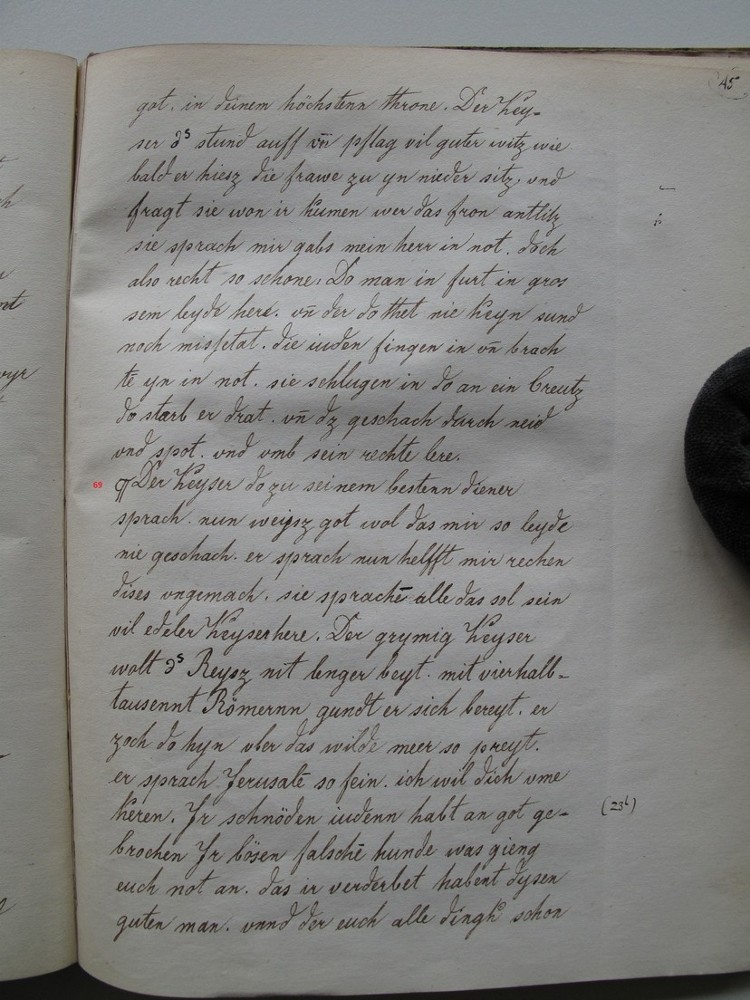 45
got. in deinem höchstenn throne. Der Key-
ser ds stund auff vn̄ pflag vil guter witz wie
bald er hiesz die frawe zu yn nieder sitz, vnd
fragt sie won ir kumen wer das fron antlitz
sie sprach mir gabs mein herr in not. doch
also recht so schone: Do man in furt in gros
sem leyde here. vn̄ der do thet nie keyn sund
noch missetat. die iuden fingen in vn̄ brach
tē yn in not. sie schlugen in do an ein Creutz
do starb er drat. vn̄ dz geschach durch neid
vnd spot. vnd vmb sein rechte lere.
69 ¶ Der Keyser do zu seinem bestenn diener
sprach. nun weysz got wol das mir so leyde
nie geschach. er sprach nun helfft mir rechen
dises vngemach. sie sprachē alle das sol sein
vil edeler Keyser here. Der grymig Keyser
wolt ds Reysz nit lenger beyt. mit vierhalb-
tausennt Römernn gundt er sich bereyt. er
zoch do hyn vber das wilde meer so preyt.
er sprach Jerusalē so fein. ich wil dich vme
keren. Jr schnöden iudenn habt an got ge-
(23b)
brochen Jr bösen falschē hunde was gieng
euch not an. das ir verderbet habent dysen
guten man. vnnd der euch alle dingk schon